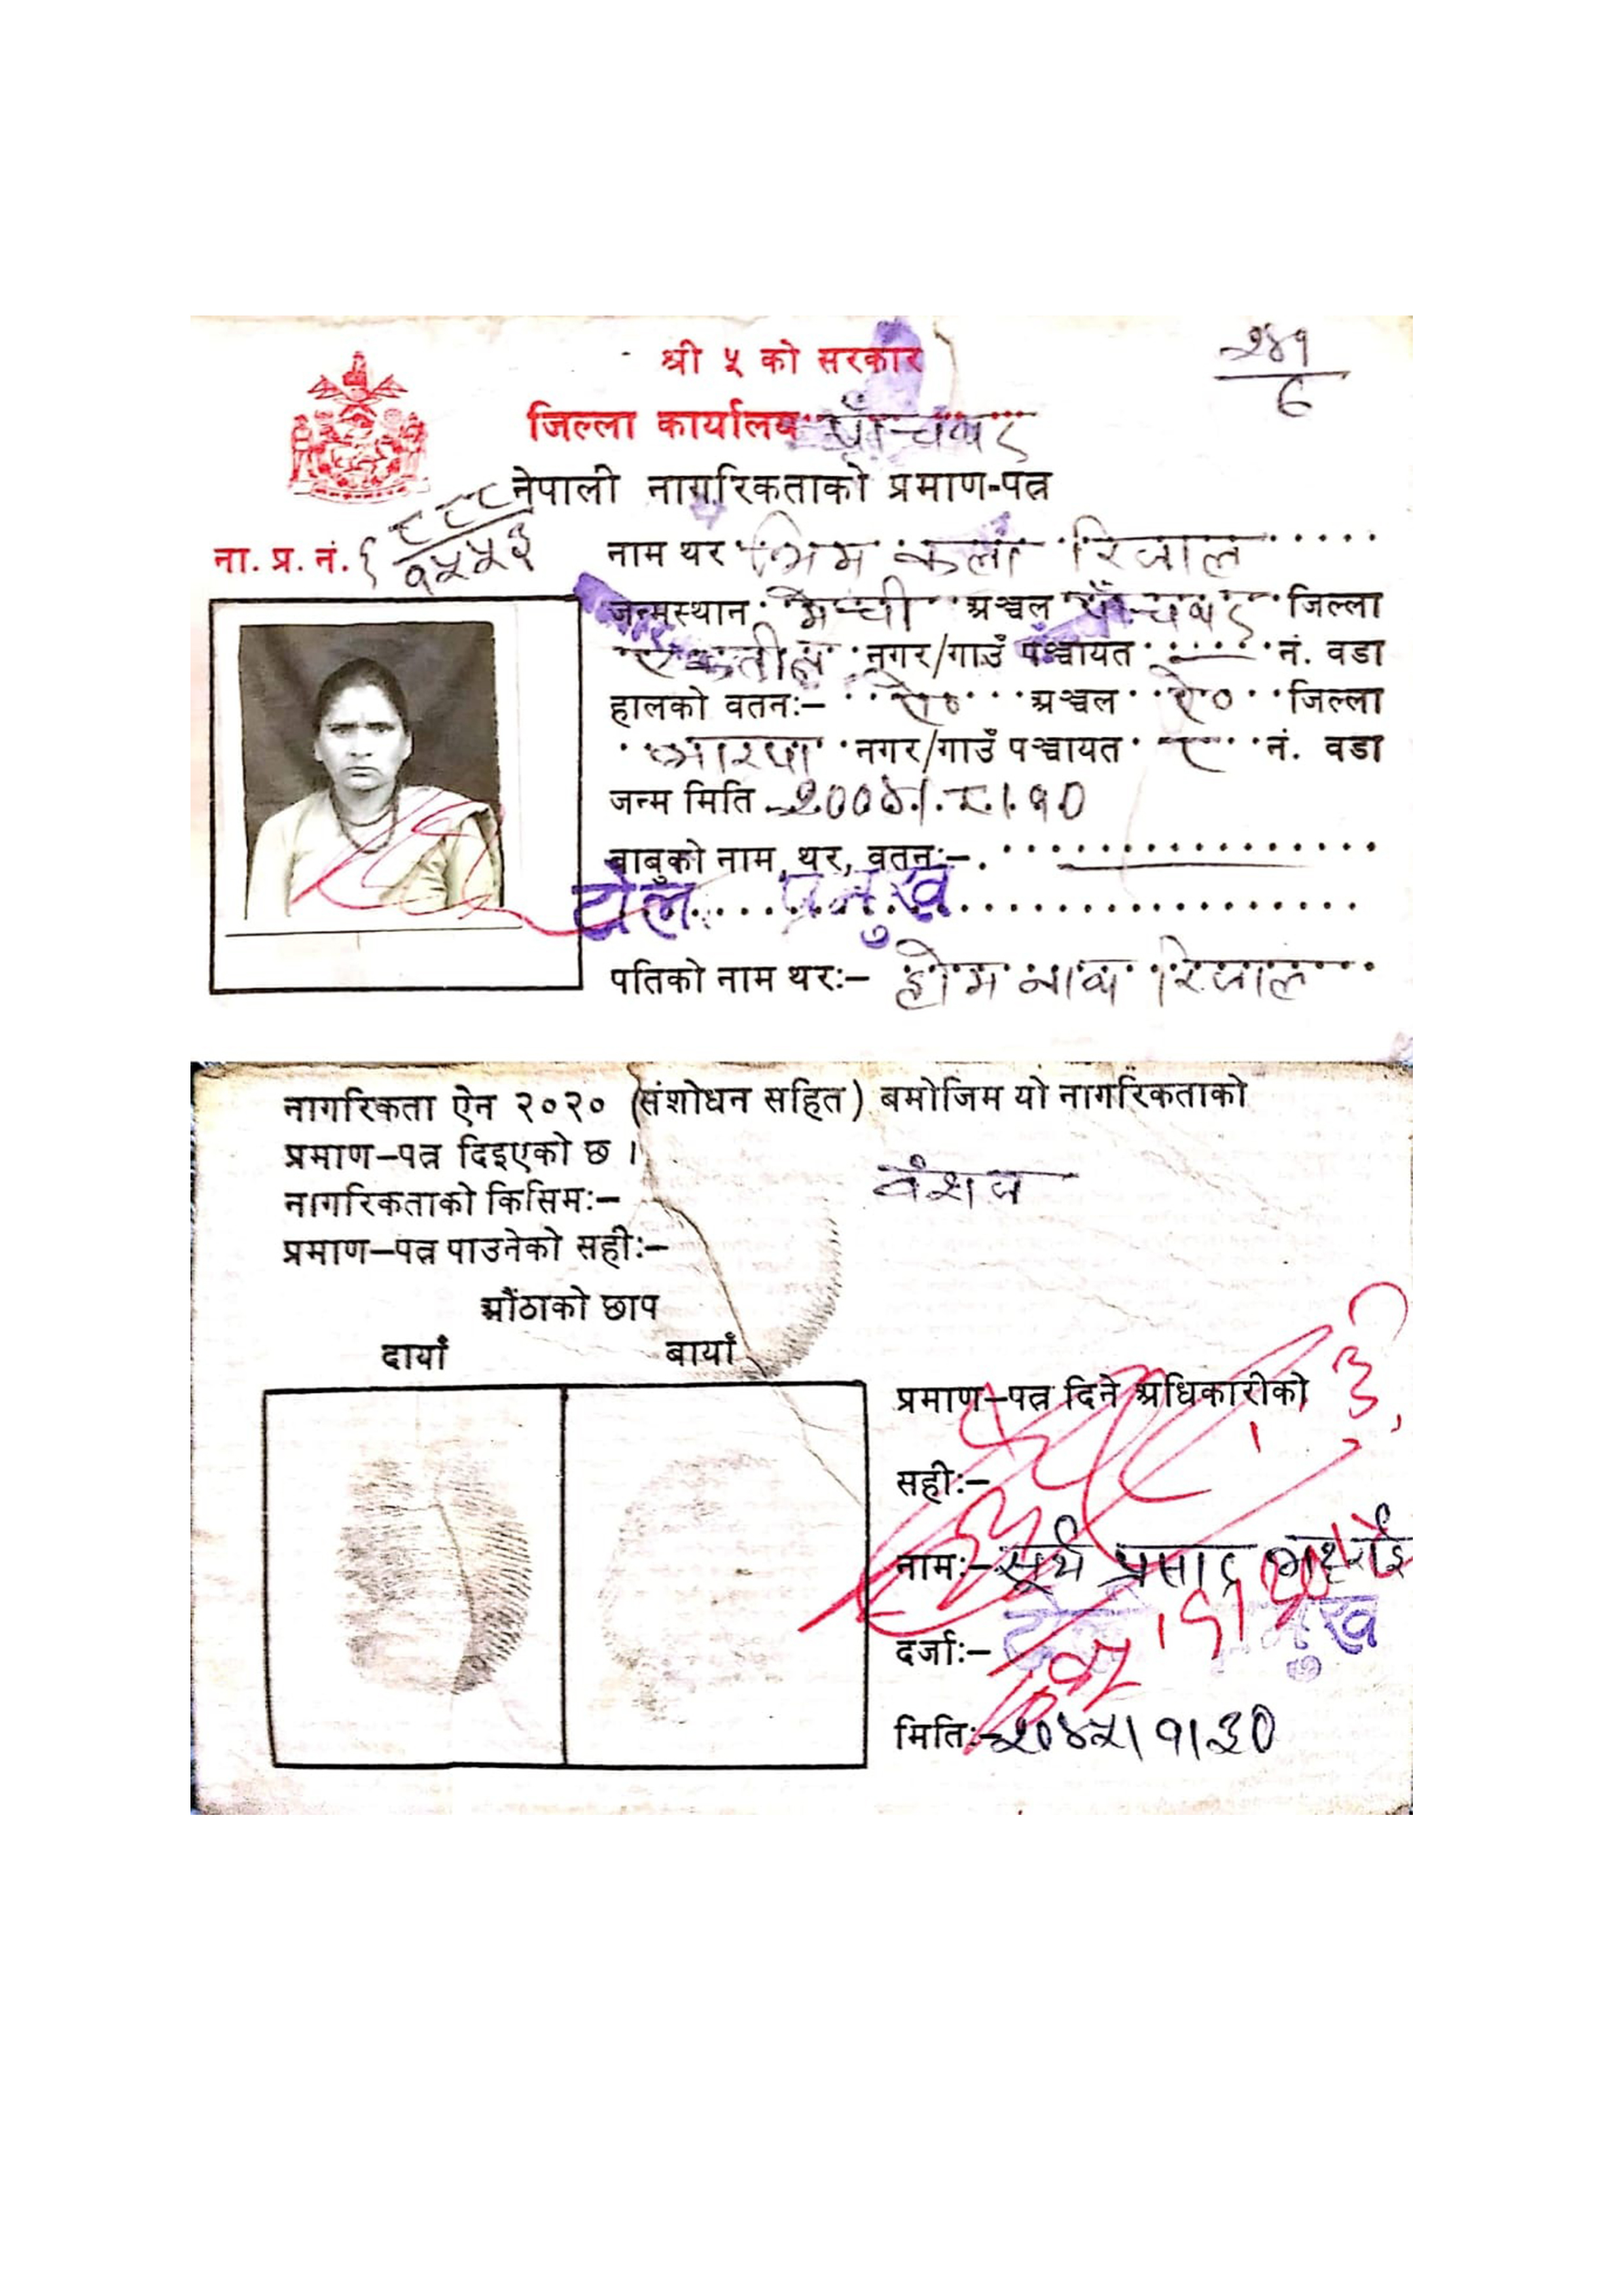 श्री ५ को सरकार
२४१
६
जिल्ला कार्यालय पाँचथर
नेपाली नागरिकताको प्रमाण-पत्र
ना. प्र. नं. १५५३
नाम थर भिम कला रिजाल
जन्मस्थान मेच्ची अञ्चल पाँचथर जिल्ला
एकतीन नगर/गाउँ पञ्चायत नं. वडा
हालको वतनः- ऐ० अञ्चल ऐ० जिल्ला
भारपा नगर/गाउँ पञ्चायत नं. वडा
जन्म मिति २००४।८।१०
बाबुको नाम, थर, वतनः-
टोली प्रमुख
पतिको नाम थरः- होम नाथ रिजाल
नागरिकता ऐन २०२० (संशोधन सहित) बमोजिम यो नागरिकताको
प्रमाण-पत्र दिइएको छ ।
नागरिकताको किसिमः- वंशज
प्रमाण-पत्र पाउनेको सहीः-
औंठाको छाप
दायाँ बायाँ
प्रमाण-पत्र दिने अधिकारीको
सहीः-
नामः- सूर्य प्रसाद भट्टराई
दर्जाः- टोली प्रमुख
मितिः- २०४५।१।३०